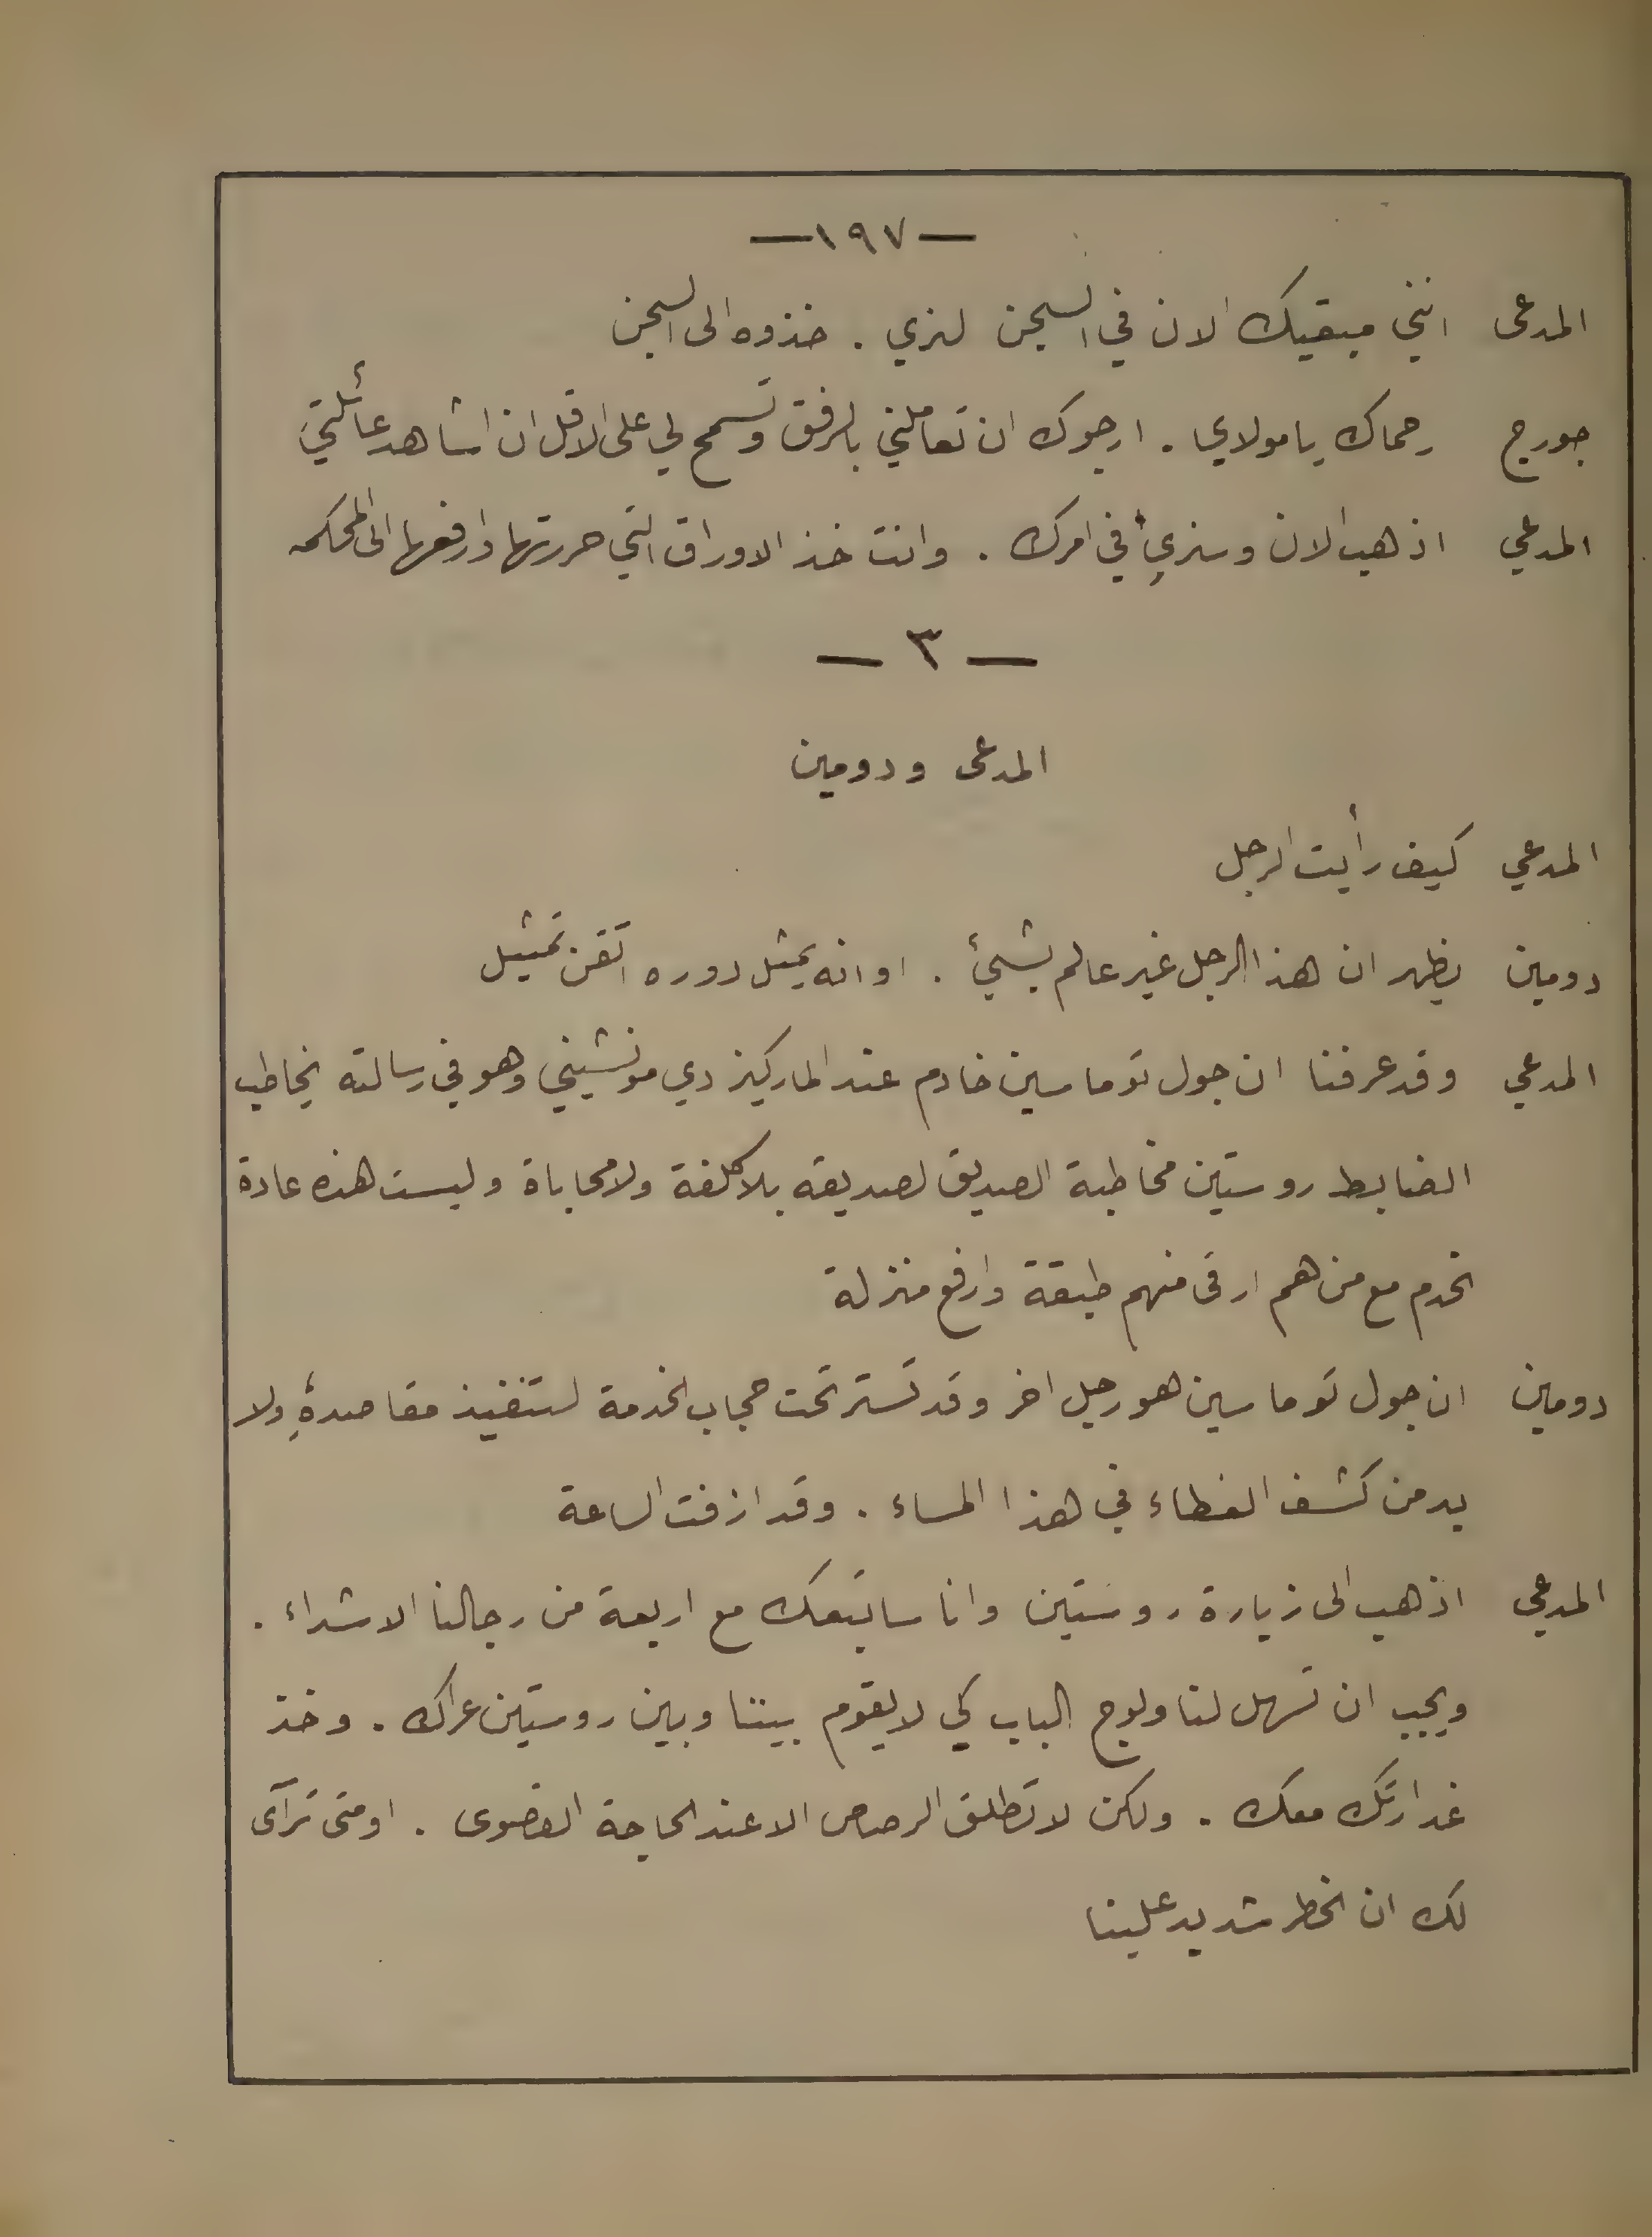 —١٩٧—
المدعى انني مبقيك الان في السجن لنري . خذوه الى السجن
جورج رحماك يا مولاي . ارجوك ان تعاملني بالرفق وتسمح لي على الاقل ان اشاهد عائلتي
المدعي اذهب الان وسنري في امرك . وانت خذ الاوراق التي حررتها وارفعها الى المحكمه
— ٣ —
المدعى ودومين
المدعي كيف رأيت الرجل
دومين يظهر ان هذا الرجل غير عالم بشيئ . او انه يمثل دوره اتقن تمثيل
المدعي وقد عرفنا ان جول توماسين خادم عند الماركيز دي مونشيني وهو في رسالته يخاطب
الضابط روستين مخاطبة الصديق لصديقه بلا كلفة ولا محاباة وليست هذه عادة
الخدم مع من هم ارقى منهم طبقة وارفع منزلة
دومين ان جول توماسين هو رجل اخر وقد تستر تحت حجاب الخدمة لتنفيذ مقاصده ولا
بد من كشف الغطاء في هذا المساء . وقد ازفت الساعة
المدعي اذهب الى زيارة روستين وانا ساتبعك مع اربعة من رجالنا الاشداء .
ويجب ان تسهل لنا ولوج الباب كي لا يقوم بيننا وبين روستين عراك . وخذ
غدارتك معك . ولكن لا تطلق الرصاص الا عند الحاجة القصوى . او متى ترآى
لك ان الخطر شديد علينا